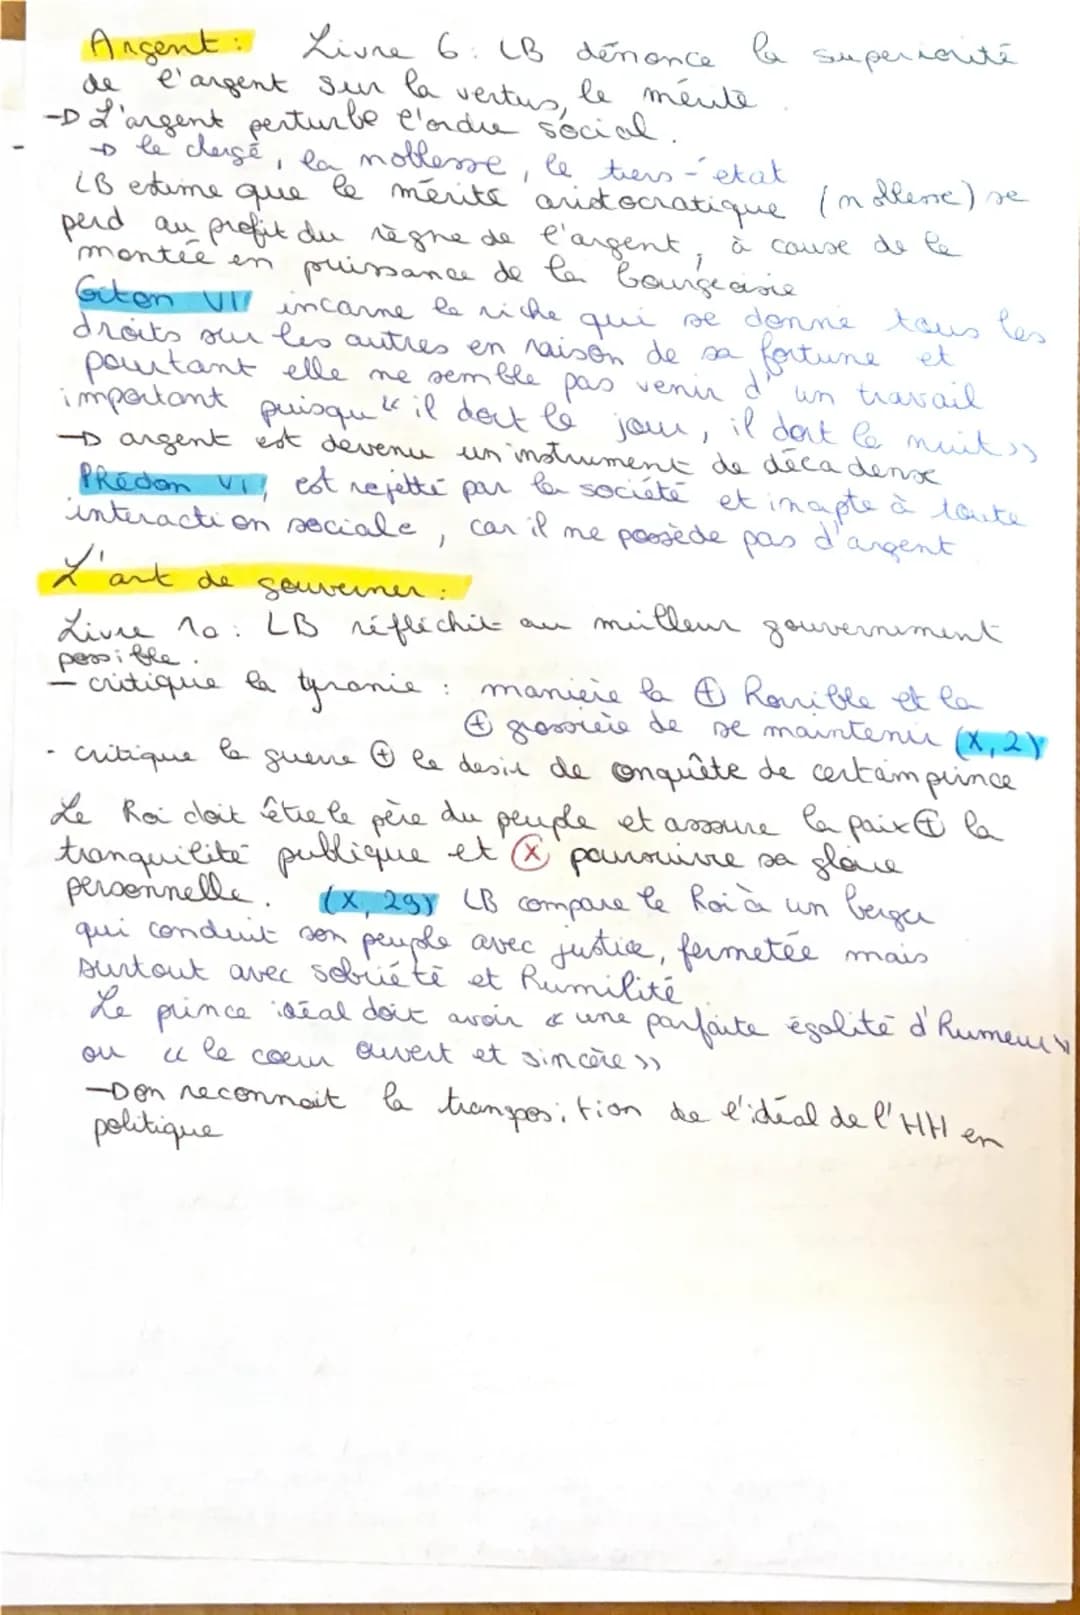 Argent : Livre 6 : LB dénonce la superiorité
de l'argent sur la vertus, le mérite.
→ L'argent perturbe l'ordre social.
→ le clergé, la noblesse, le tiers-état
LB estime que le mérite aristocratique (noblesse) se
perd au profit du règne de l'argent, à cause de la
montée en puissance de la bourgeoisie
Giton VI incarne le riche qui se donne tous les
droits sur les autres en raison de sa fortune et
pourtant elle ne semble pas venir d'un travail
important puisqu'" il dort le jour, il dort la nuit >>
→ argent est devenu un instrument de décadence
PHédon VI, est rejetté par la société et inapte à toute
interaction sociale, car il ne possède pas d'argent
L'art de gouverner :
Livre 10 : LB réfléchit au meilleur gouvernement
possible.
- critique la tyranie : manière la ⊕ horrible et la
⊕ grossière de se maintenir (X, 2)
- critique la guerre ⊕ le desir de conquête de certain prince
Le Roi doit être le père du peuple et assure la paix ⊕ la
tranquilité publique et ⓧ poursuivre sa gloire
personnelle. (X, 29) LB compare le Roi à un berger
qui conduit son peuple avec justice, fermetée mais
surtout avec sobriété et humilité
Le prince idéal doit avoir « une parfaite égalité d'humeur »
ou « le coeur ouvert et sincère >>
→ on reconnait la transposition de l'idéal de l'HH en
politique